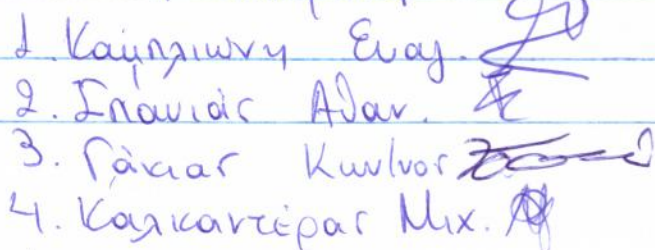 1. Καμπλιώνη Ευαγ.
2. Σπανιάς Αθαν.
3. Γάκιας Κων/νος
4. Καλκαντέρας Μιχ.